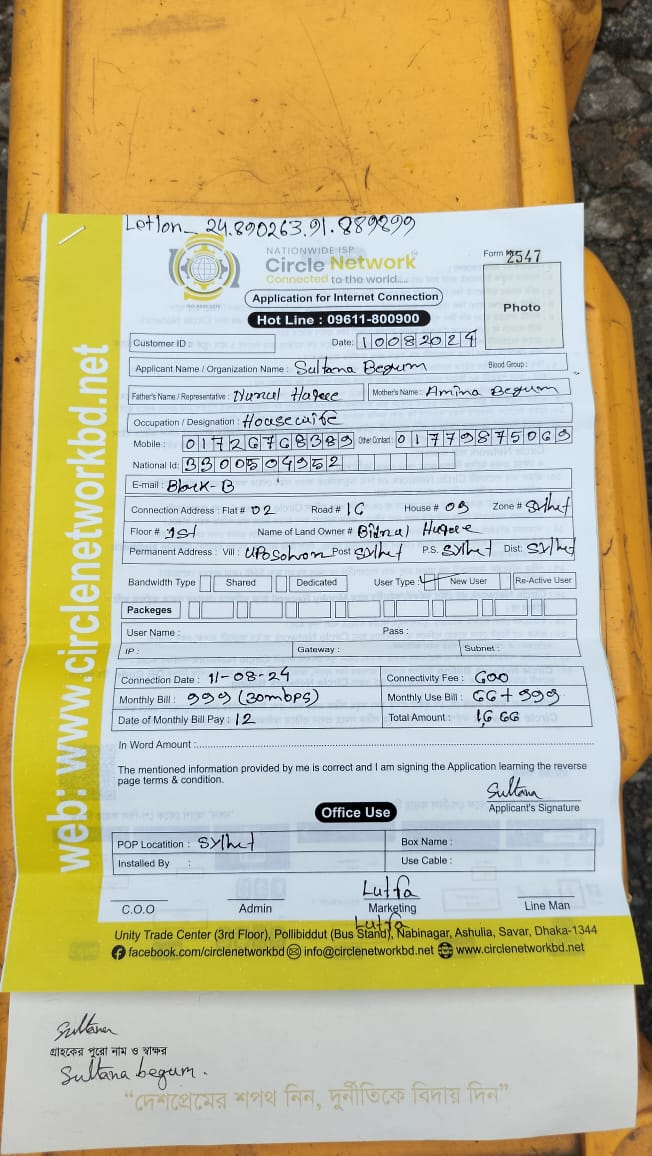 Letlon_ 24.890263.91.889899
NATIONWIDE ISP
Circle Network
Connected to the world.....
Form No 2547
Application for Internet Connection
Hot Line : 09611-800900
Photo
Customer ID :
Date: 10082024
Applicant Name / Organization Name : Sultana Begum Blood Group :
Father's Name / Representative : Mother's Name : Amina Begum
Occupation / Designation : Housewife
Mobile : 01726768389 Other Contact : 01779875069
National Id: 3300504952
E-mail : Block-B
Connection Address : Flat # 02 Road # 16 House # 09 Zone # Sylhet
Floor # 1st Name of Land Owner #
Permanent Address : Vill : Uposohom Post Sylhet P.S. Sylhet Dist: Sylhet
Bandwidth Type Shared Dedicated User Type : New User Re-Active User
Packeges
User Name : Pass :
IP : Gateway : Subnet :
Connection Date : 11-08-24 Connectivity Fee : 600
Monthly Bill : 999 (30mbps) Monthly Use Bill : 66 + 999
Date of Monthly Bill Pay : 12 Total Amount : 1,666
In Word Amount :
The mentioned information provided by me is correct and I am signing the Application learning the reverse
page terms & condition.
Sultana
Applicant's Signature
Office Use
POP Locatition : Sylhet Box Name :
Installed By : Use Cable :
Lutfa
C.O.O Admin Marketing Line Man
Lutfa
Unity Trade Center (3rd Floor), Pollibiddut (Bus Stand), Nabinagar, Ashulia, Savar, Dhaka-1344
facebook.com/circlenetworkbd info@circlenetworkbd.net www.circlenetworkbd.net
web: www.circlenetworkbd.net
Sultana
গ্রাহকের পুরো নাম ও স্বাক্ষর
Sultana begum.
“দেশপ্রেমের শপথ নিন, দুর্নীতিকে বিদায় দিন”